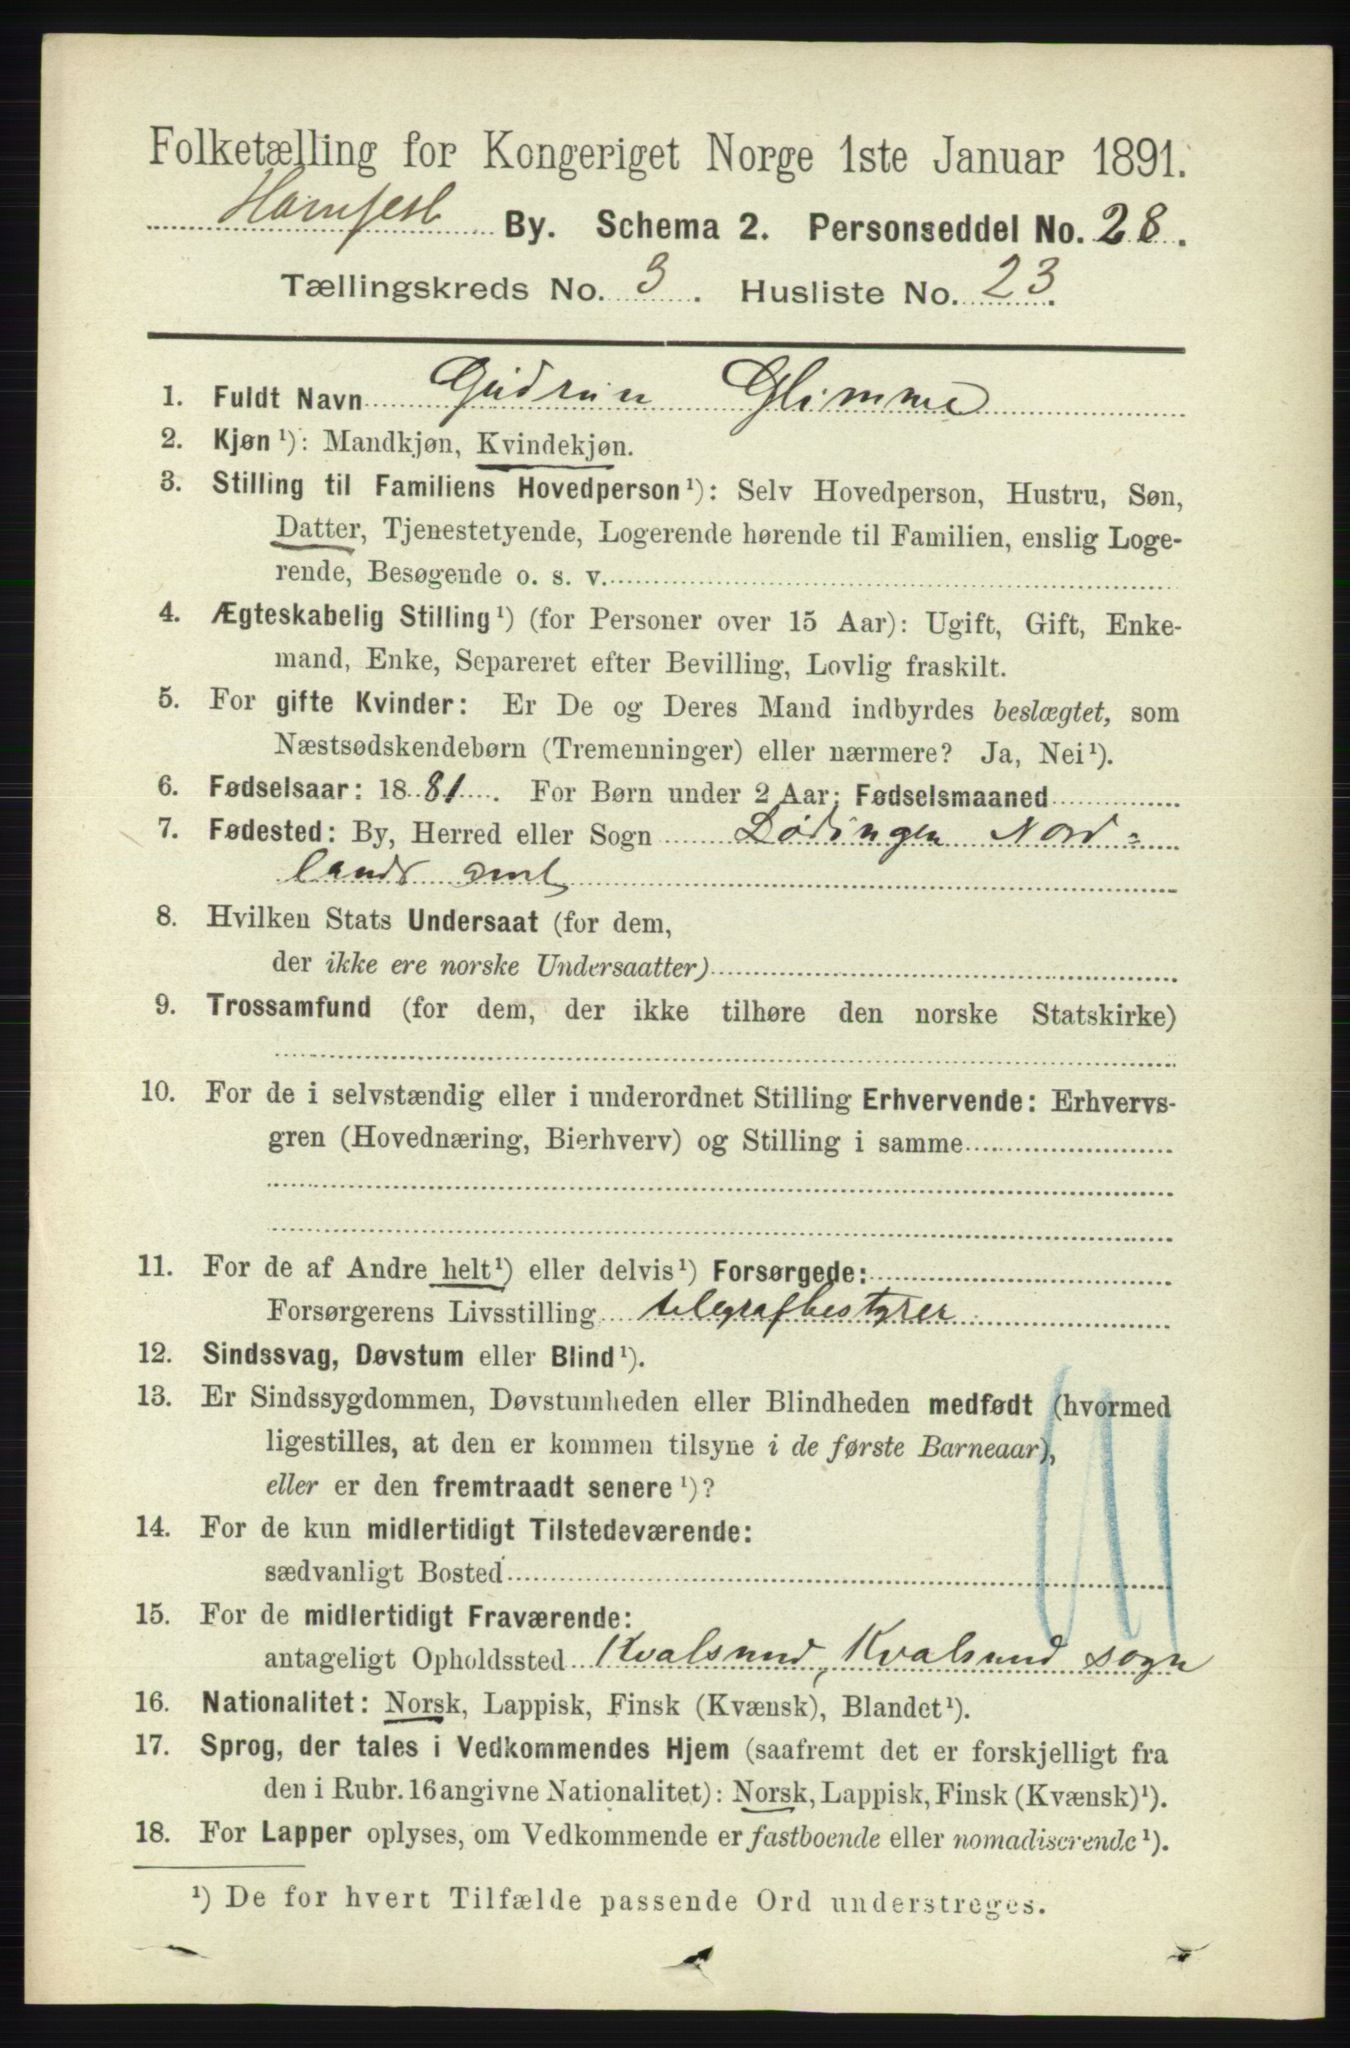 Folketælling for Kongeriget Norge 1ste Januar 1891.
Hamfest By. Schema 2. Personseddel No. 28.
Tællingskreds No. 3. Husliste No. 23.
1. Fuldt Navn Gudrun Glimme
2. Kjøn¹): Mandkjøn, Kvindekjøn.
3. Stilling til Familiens Hovedperson¹): Selv Hovedperson, Hustru, Søn,
Datter, Tjenestetyende, Logerende hørende til Familien, enslig Loge-
rende, Besøgende o. s. v.
4. Ægteskabelig Stilling¹) (for Personer over 15 Aar): Ugift, Gift, Enke-
mand, Enke, Separeret efter Bevilling, Lovlig fraskilt.
5. For gifte Kvinder: Er De og Deres Mand indbyrdes beslægtet, som
Næstsødskendebørn (Tremenninger) eller nærmere? Ja, Nei¹).
6. Fødselsaar: 1881. For Børn under 2 Aar: Fødselsmaaned
7. Fødested: By, Herred eller Sogn Lødingen Nord-
lands amt
8. Hvilken Stats Undersaat (for dem,
der ikke ere norske Undersaatter)
9. Trossamfund (for dem, der ikke tilhøre den norske Statskirke)
10. For de i selvstændig eller i underordnet Stilling Erhvervende: Erhvervs-
gren (Hovednæring, Bierhverv) og Stilling i samme
11. For de af Andre helt¹) eller delvis¹) Forsørgede:
Forsørgerens Livsstilling telegrafbestyrer
12. Sindssvag, Døvstum eller Blind¹).
13. Er Sindssygdommen, Døvstumheden eller Blindheden medfødt (hvormed
ligestilles, at den er kommen tilsyne i de første Barneaar),
eller er den fremtraadt senere¹)?
14. For de kun midlertidigt Tilstedeværende:
sædvanligt Bosted
15. For de midlertidigt Fraværende:
antageligt Opholdssted Kvalsund, Kvalsund sogn
16. Nationalitet: Norsk, Lappisk, Finsk (Kvænsk), Blandet¹).
17. Sprog, der tales i Vedkommendes Hjem (saafremt det er forskjelligt fra
den i Rubr. 16 angivne Nationalitet): Norsk, Lappisk, Finsk (Kvænsk)¹).
18. For Lapper oplyses, om Vedkommende er fastboende eller nomadiserende¹).
¹) De for hvert Tilfælde passende Ord understreges.